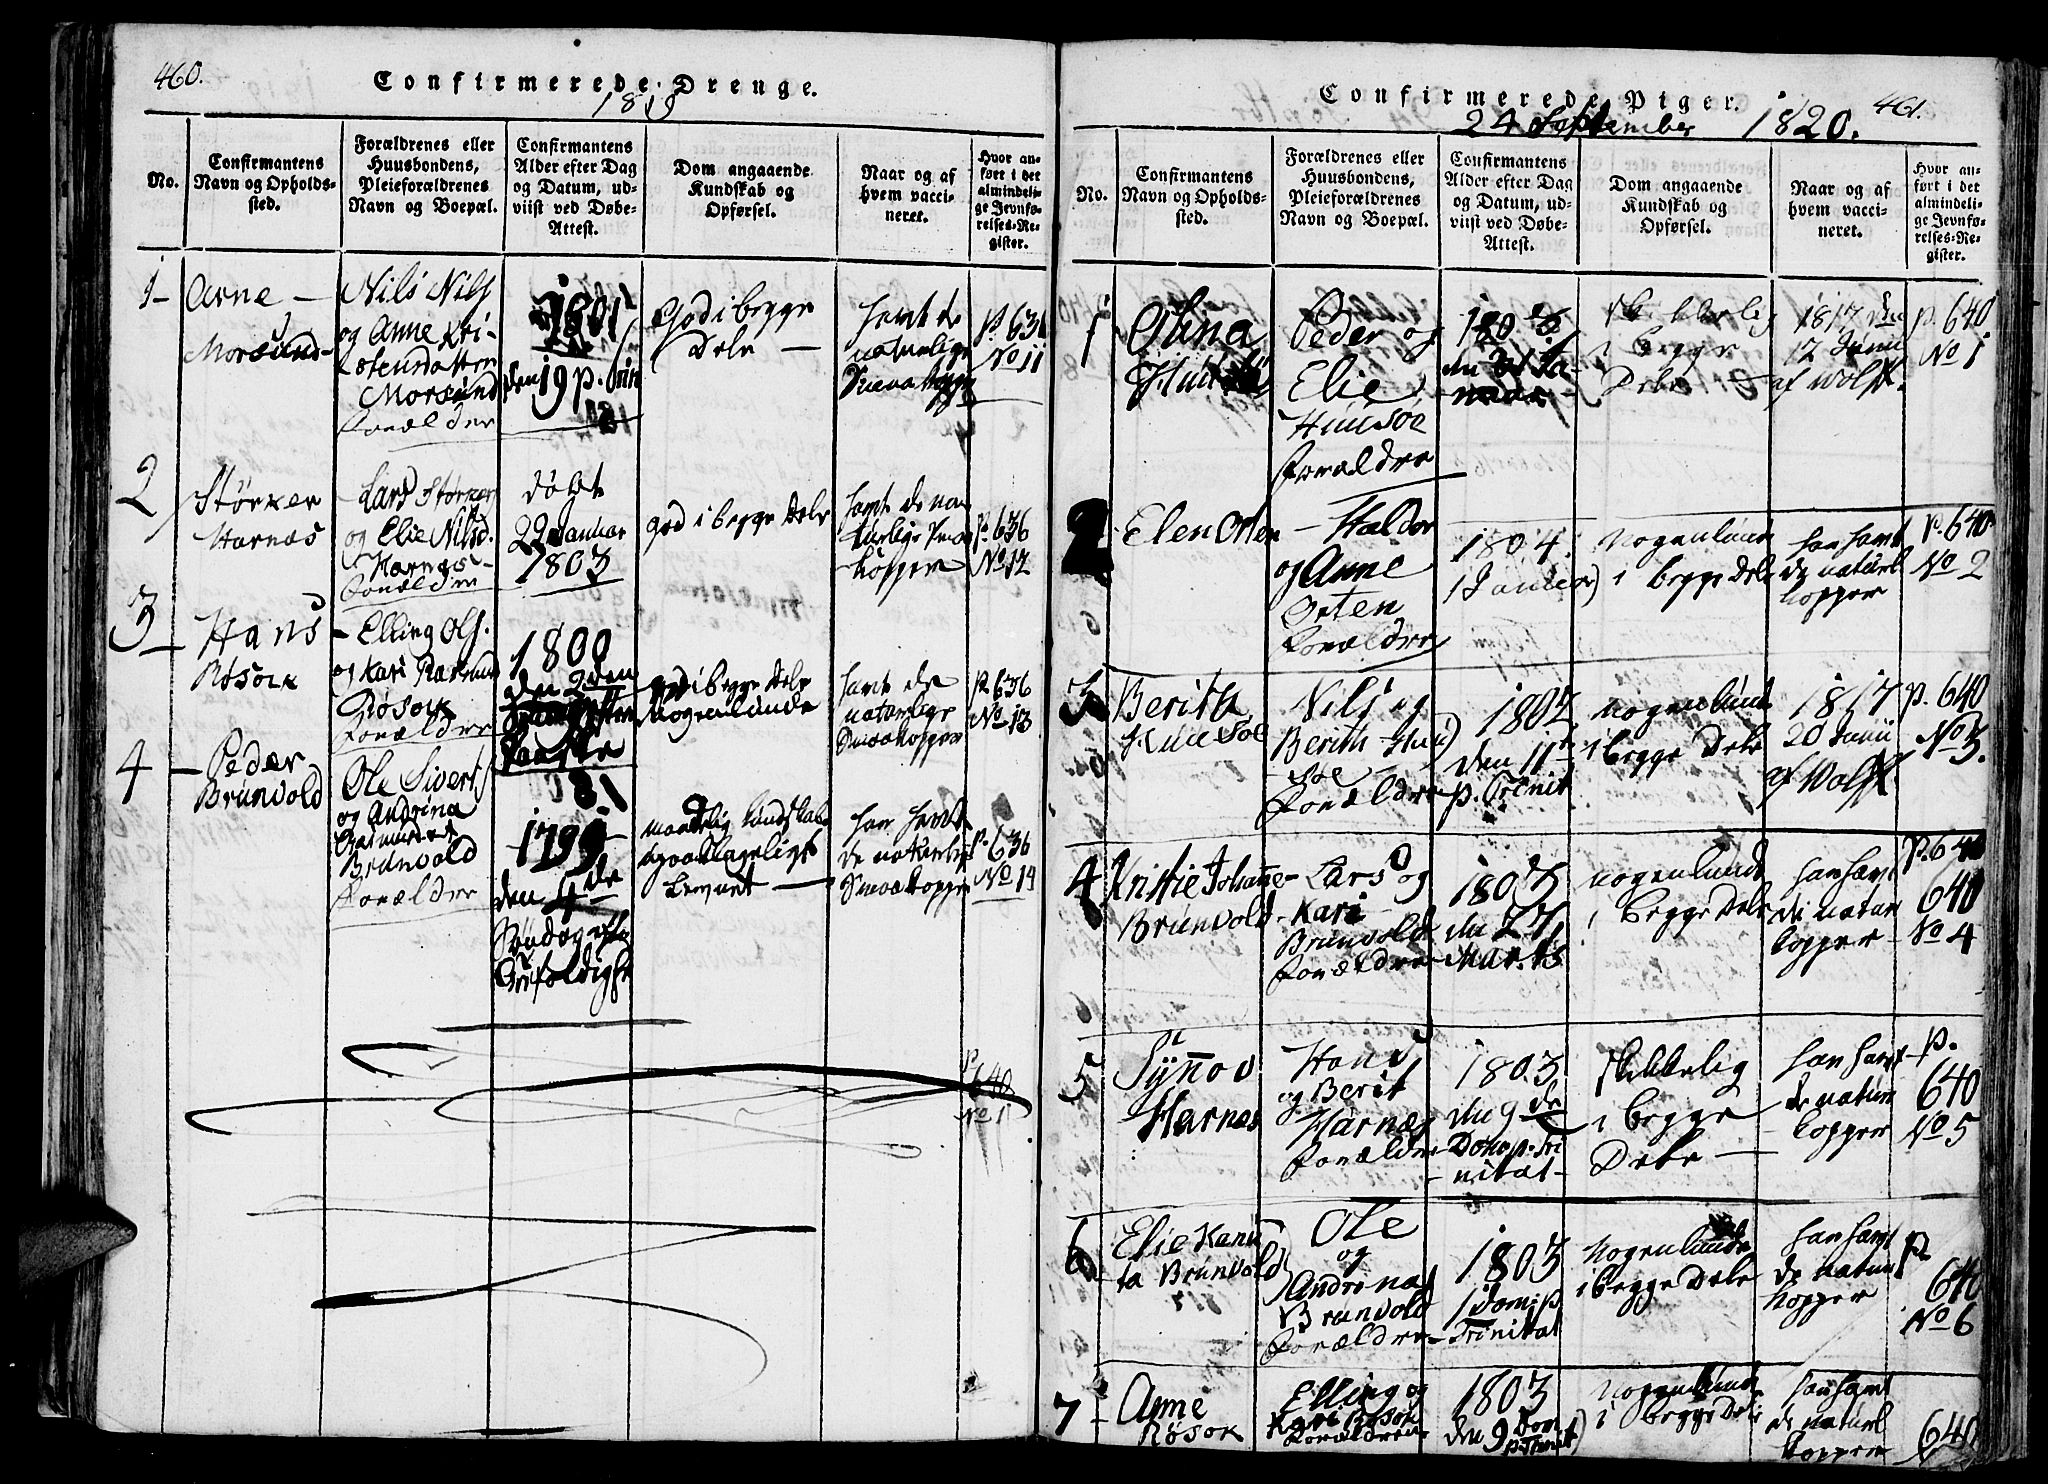 460.
Confirmerede Drenge.
1819
No.
Confirmantens
Navn og Opholds-
sted.
Forældrenes eller
Huusbondens,
Pleieforældrenes
Navn og Boepæl.
Confirmantens
Alder efter Dag
og Datum, ud-
viist ved Døbe-
Attest.
Dom angaaende
Kundskab og
Opførsel.
Naar og af
hvem vacci-
neret.
Hvor an-
ført i det
almindeli-
ge Jevnfø-
relses-Re-
gister.
1-
Arne -
Morsund-
Nils Nils
og Anne Kri-
stensdatter
Morsund
Forælder
1801
den 19 p. Trin
God i begge
Dele
havt de
naturlige
Smaakopper
p. 636
No 11
2
Størker
Harnæs
Lars Størkers
og Elie Nilsd.
Harnæs
Forælder
døbt
22 Januar
1803
god i begge Dele
havt de na-
turlige Smaa-
kopper
p. 636
No 12
3
Hans
Røsok
- Elling Ols.
og Kari
Røsok
Forælder
1800
den 2den
god i begge Dele
Nogenlunde
havt de
naturlige
Smaakopper
p. 636
No 13
4
- Peder
Brunvold
Ole Siverts
og Andrina
Brunvold
Forælder
1799
den 4de
Søndag efter
maadelig Kundskab
havt
de naturlige
Smaakopper
p. 636
No 14
p.
640
No 1
Confirmerede Piger.
461.
24 September 1820.
No.
Confirmantens
Navn og Opholds-
sted.
Forældrenes eller
Huusbondens,
Pleieforældrenes
Navn og Boepæl.
Confirmantens
Alder efter Dag
og Datum, ud-
viist ved Døbe-
Attest.
Dom angaaende
Kundskab og
Opførsel.
Naar og af
hvem vacci-
neret.
Hvor an-
ført i det
almindeli-
ge Jevnfø-
relses-Re-
gister.
1
Olina
Peder og
Elie
Huusøe
Forældre
i begge
Dele
1817 den
12 Junii
af Wolff.
p. 640
No 1
2
Elen Orten
- Haldor
og Anne
Orten
Forældre
1804.
Nogenlunde
i begge Dele
han havt
de naturl
kopper
p. 640
No 2
3
Berith
Huusøe
Nils og
Berith Huu
søe
Forældre
1802
den 11te
p. Trinit
Nogenlunde
i begge Dele
1817
20 Junii
af Wolff
p. 640
No 3.
4
Kristie Johanne-
Brunvold
Lars og
Kari
Brunvold
Forældre
1803
den 27
Marts
Nogenlunde
i begge Dele
han havt
de natur
kopper
p. 640
640
No 4
5
Synnov
Harnes
Hans
og Berit
Harnæs
Forældre
1803
den 9de
Dom. p. Tri
nitat-
skikkelig
i begge
Dele -
han havt
de natur
kopper
p.
640
No 5
6
Elie Kani
ta Brunvold
Ole
og
Andrina
Brunvold
Forældre
1803
1 dom. p.
Trinitat
Nogenlunde
i begge Dele
han havt
de natur
kopper
p
640
No 6
7
Anne
Røsok
Elling og
Kari Røsok
Forældrene
1803
den 9 Dom
p. Trinit
Nogenlunde
i begge Dele
han havt
de naturl
kopper
640